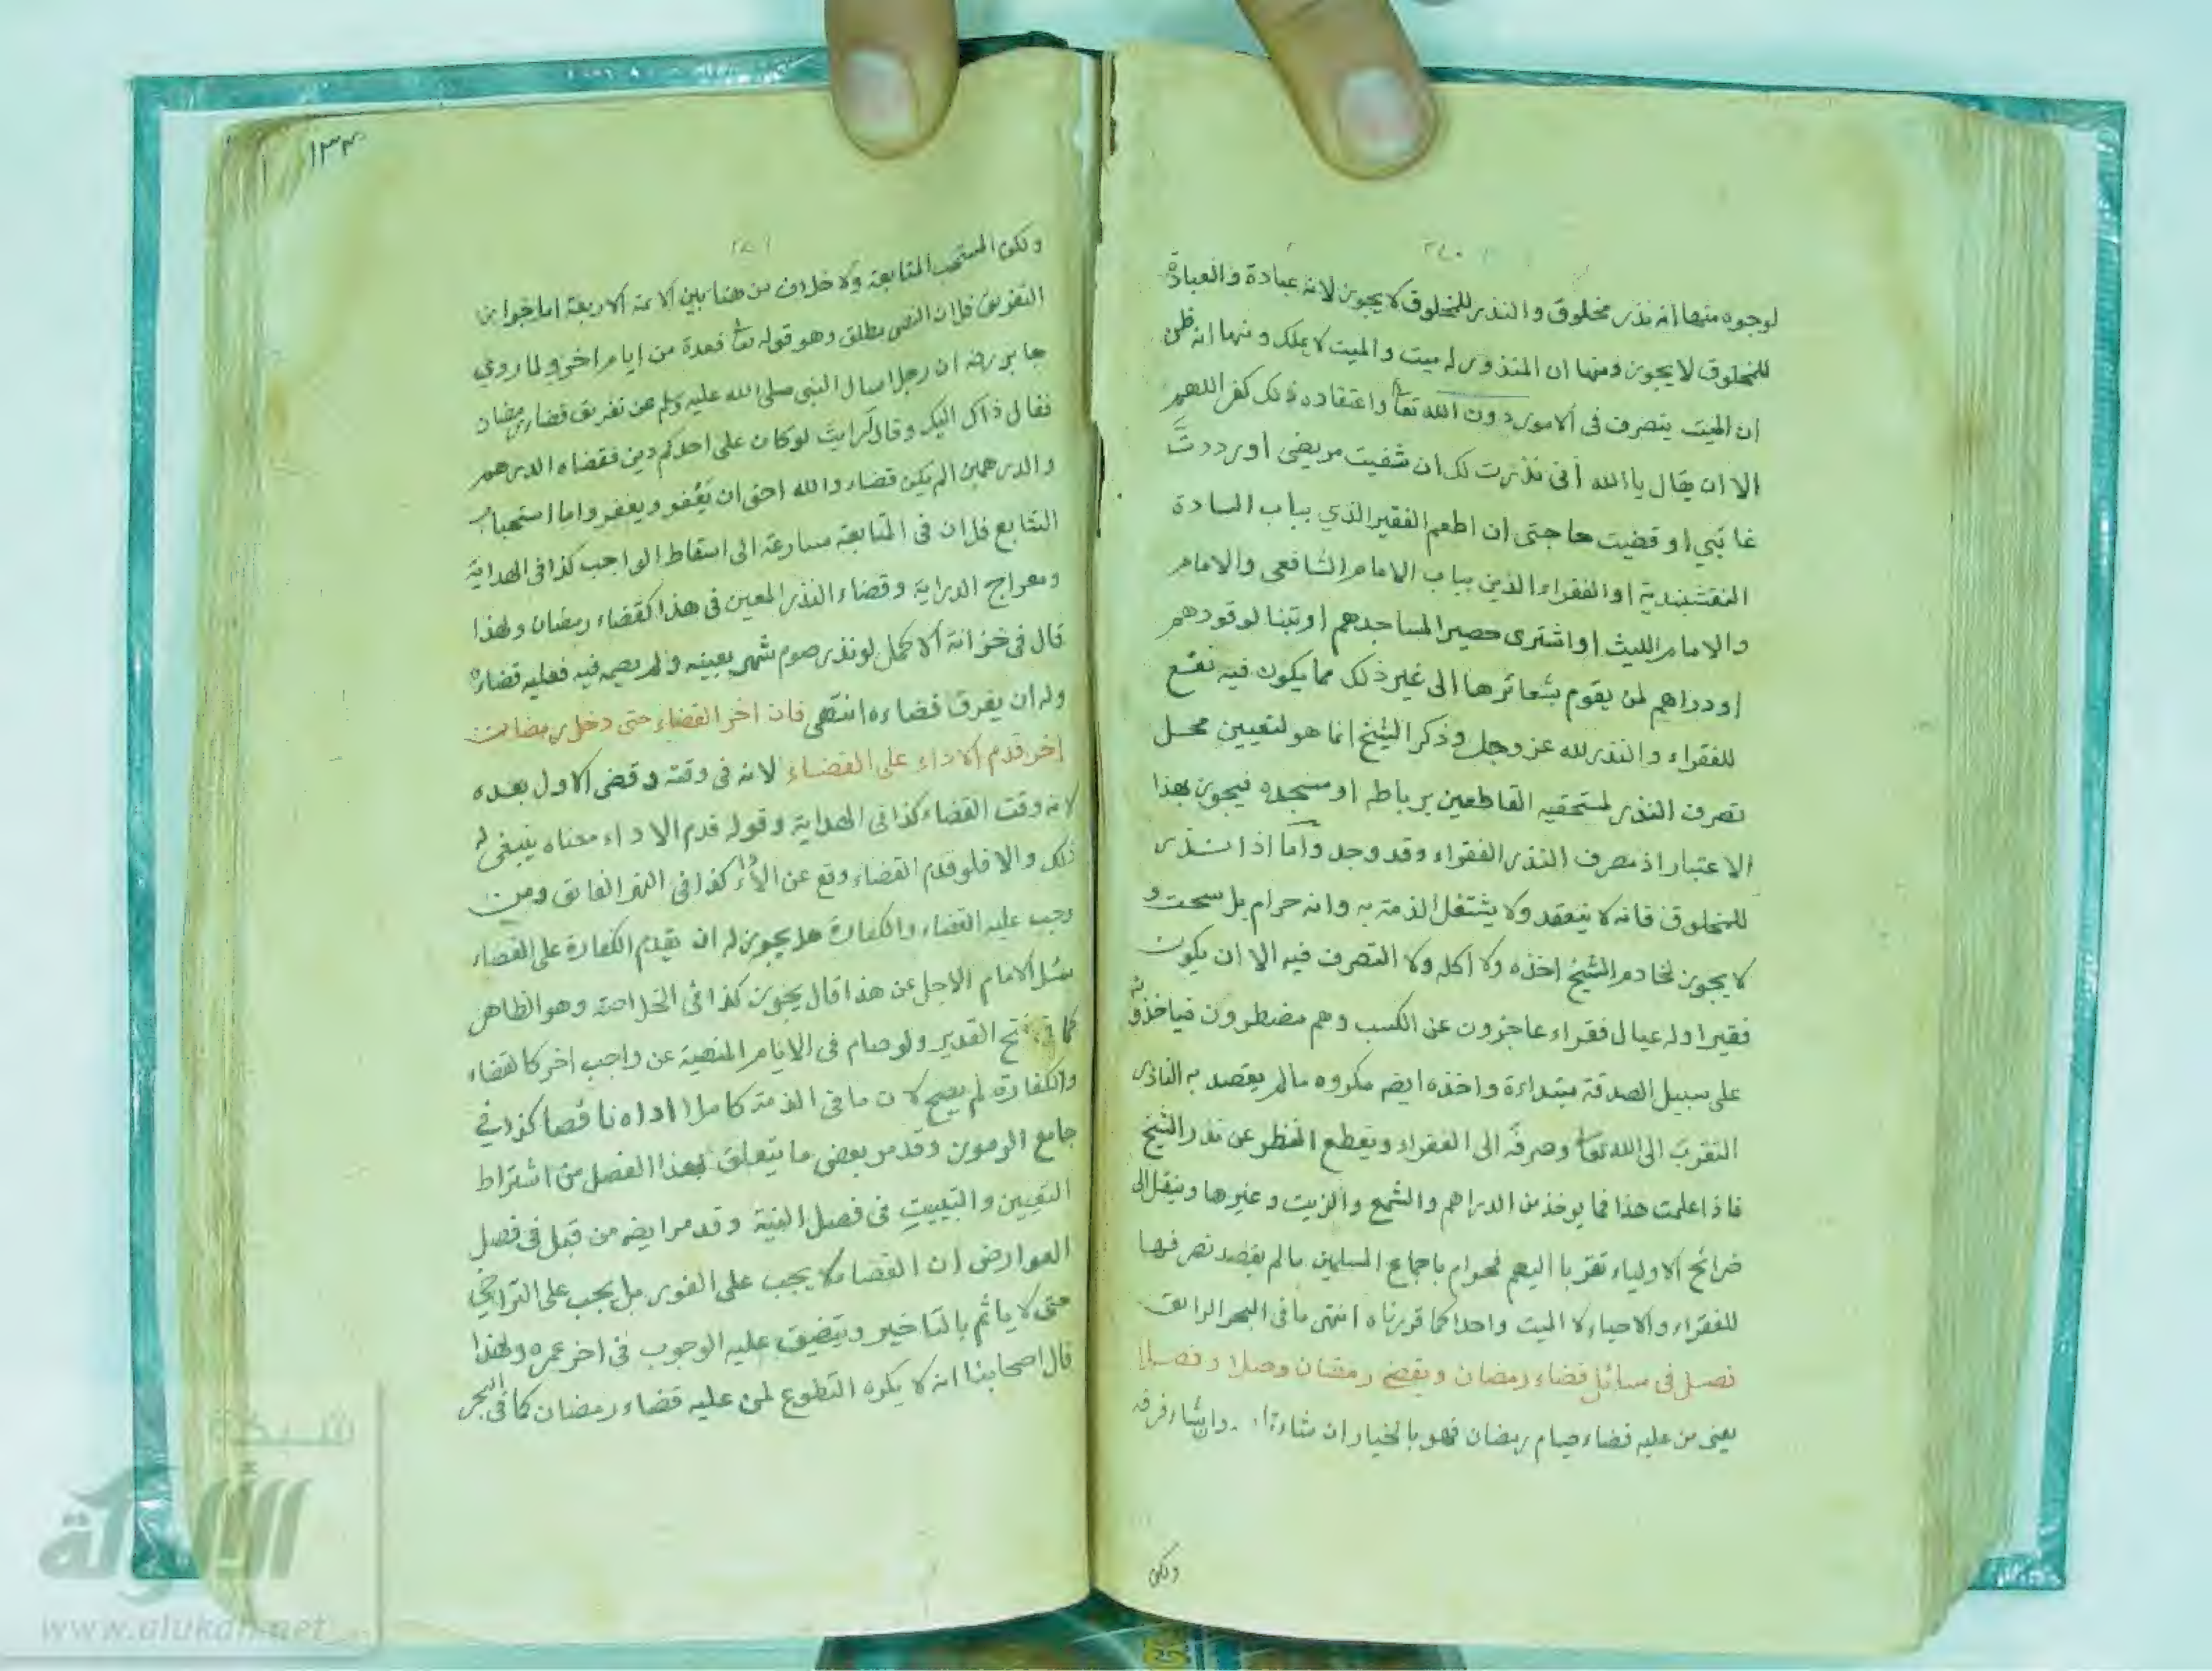 ٢٧٠
لوجوه منها انه نذر مخلوق والنذر للمخلوق لا يجوز لانه عبادة والعبادة
للمخلوق لا يجوز ومنها ان المنذور له ميت والميت لا يملك ومنها انه ظن
ان الميت يتصرف فى الامور دون الله تعا واعتقاده ذلك كفر اللهم
الا ان يقال يا الله انى نذرت لك ان شفيت مريضى او رددتَّ
غائبي او قضيت حاجتى ان اطعم الفقير الذي بباب السادة
النقشبندية او الفقراء الذين بباب الامام الشافعى والامام
والامام الليث او اشترى حصير المساجدهم او تبنا لوقودهم
او دراهم لمن يقوم بشعائرها الى غير ذلك مما يكون فيه نفع
للفقراء والنذر لله عز وجل وذكر الشيخ انما هو لتعيين محل
تصرف النذر لمستحقيه القاطعين برباطه او مسجده فيجوز بهذا
الاعتبار اذ مصرف النذر الفقراء وقد وجد واما اذا نذر
للمخلوق فانه لا ينعقد ولا يشتغل الذمة به وانه حرام بل سحت و
لا يجوز لخادم الشيخ اخذه ولا اكله ولا التصرف فيه الا ان يكون
فقيرا وله عيال فقراء عاجزون عن الكسب وهم مضطرون فياخذونه
على سبيل الصدقة مبتداءة واخذه ايضم مكروه مالم يقصد به الناذر
التقرب الى الله تعا وصرفه الى الفقراء ويقطع النظر عن نذر الشيخ
فاذا علمت هذا فما يوخذ من الدراهم والشمع والزيت وغيرها وينقل الى
ضرائح الاولياء تقربا اليهم فحرام باجماع المسلمين مالم يقصد تصرفها
للفقراء والاحياء لا الميت واحدا كما قررناه انتهى ما فى البحر الرايق
فصل فى مسائل قضاء رمضان ويقضى رمضان وصلا وفصلا
يعنى من عليه قضاء صيام رمضان فهو بالخيار ان شاء وان شاء فرقه
ولكن
١٣٣
٢٧١
ولكن المستحب المتابعة ولا خلاف من هنا بين الائمة الاربعة اما جواز
التفريق فلان النص مطلق وهو قوله تعا فعدة من ايام اخر ولما روي
جابر رضه ان رجلا سال النبى صلى الله عليه وسلم عن تفريق قضاء رمضان
فقال ذاك اليك وقال أرايت لو كان على احدكم دين فقضاه الدرهم
والدرهمين الم يكن قضاء والله احق ان يَعْفو ويغفر واما استحباب
التتابع فلان فى المتابعة مسارعة الى اسقاط الواجب كذا فى الهداية
ومعراج الدراية وقضاء النذر المعين فى هذا كقضاء رمضان ولهذا
قال فى خزانة الاكمل لو نذر صوم شهر بعينه ولم يصمه فيه فعليه قضاؤه
وله ان يفرق قضاءه انتهى فان اخر القضاء حتى دخل رمضان
اخر قدم الاداء على القضاء لانه فى وقته وقضى الاول بعده
لانه وقت القضاء كذا فى الهداية وقوله قدم الاداء معناه ينبغى له
ذلك والا فلو قدم القضاء وقع عن الاداء كذا فى النهر الفائق ومن
وجب عليه القضاء والكفارة هل يجوز له ان يقدم الكفارة على القضاء
سئل الامام الاجل عن هذا قال يجوز كذا فى الخلاصة وهو الظاهر
كما فى فتح القدير ولو صام فى الايام المنهية عن واجب اخر كالقضاء
والكفارة لم يصح لان ما فى الذمة كاملا اداه ناقصا كذا فى
جامع الرموز وقد مر بعض ما يتعلق بهذا الفصل من اشتراط
التعيين والتبييت فى فصل النية وقد مر ايضه من قبل فى فصل
العوارض ان القضاء لا يجب على الفور بل يجب على التراخي
حتى لا ياثم بالتاخير ويتضيق عليه الوجوب فى اخر عمره ولهذا
قال اصحابنا انه لا يكره التطوع لمن عليه قضاء رمضان كما فى البحر
شبكة
الألوكة
www.alukah.net